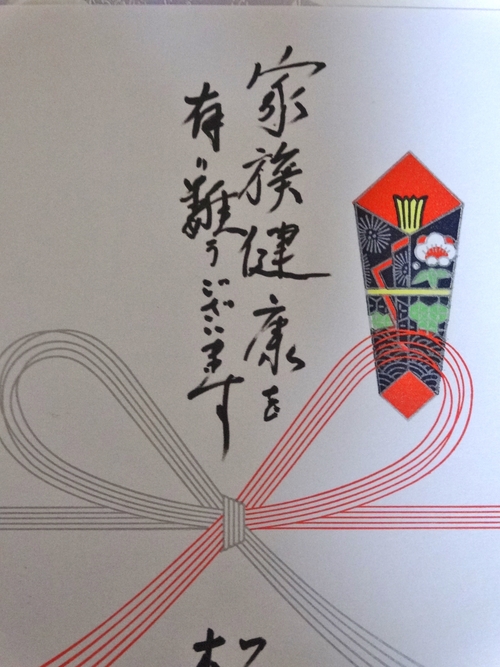 家族健康を
有り難うございます
松